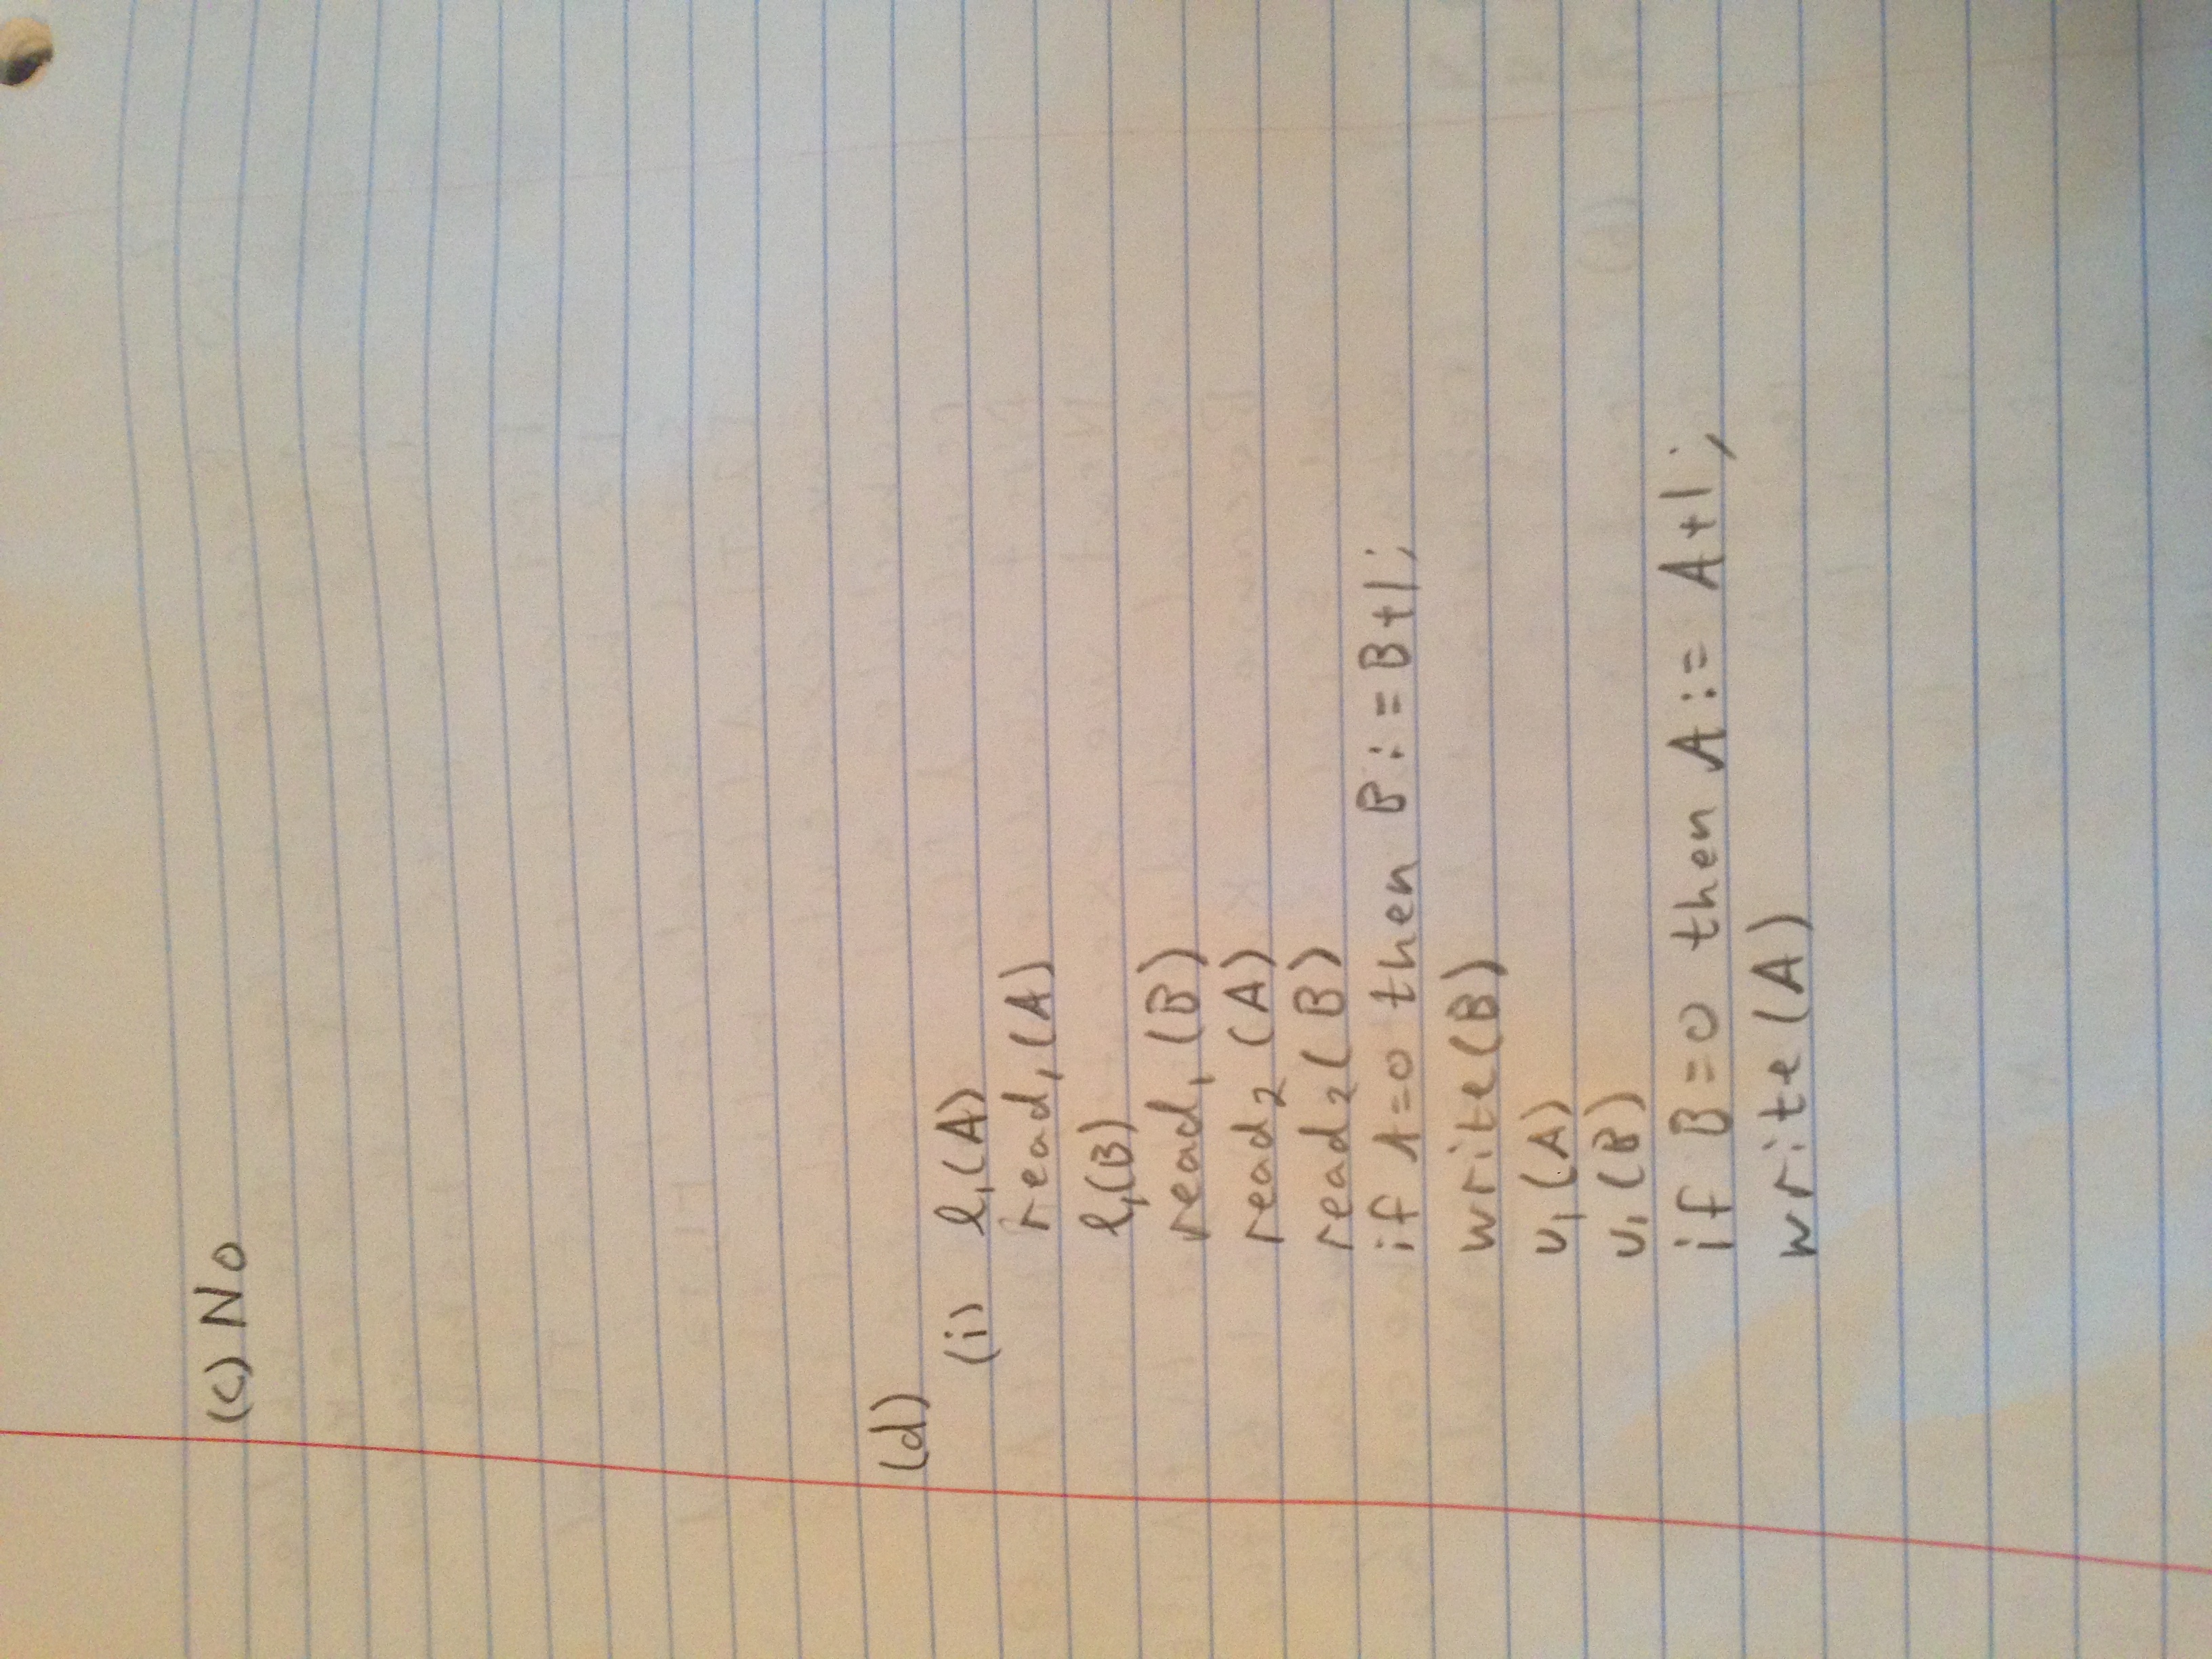 (c) No
(d)
(i) l₁(A)
read₁(A)
l₁(B)
read₁(B)
read₂(A)
read₂(B)
if A=0 then B:=B+1;
write(B)
u₁(A)
u₁(B)
if B=0 then A:= A+1;
write(A)